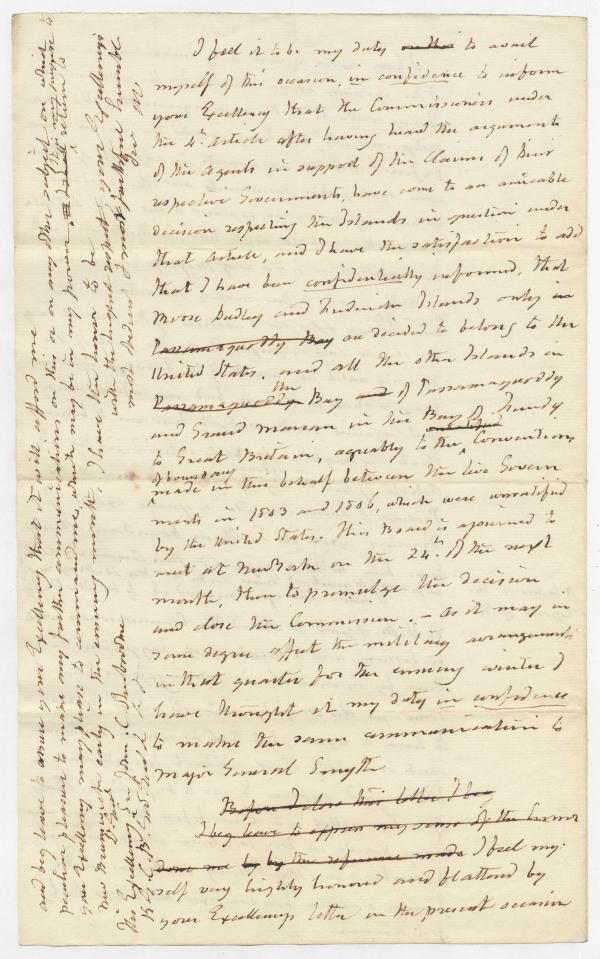 I feel it to be my duty on this to avail
myself of this occasion, in confidence to inform
your Excellency that the Commissioners under
the 4th. article after having heard the arguments
of the Agents in support of the Claims of their
respective Governments, have come to an amicable
decision respecting the Islands in question under
that article, and I have the satisfaction to add
that I have been confidentially informed, that
Moose Dudley and Frederick Islands only in
Passamaquoddy Bay are decided to belong to the
United States, and all the other Islands in
Passamaquoddy the Bay and of Passamaquoddy
and Grand Manan in the Bay of Fundy
to Great Britain, agreably to the unratified Conventions
of boundary
made in this behalf between the two Govern
ments in 1803 and 1806, which were unratified
by the United States. This Board is ajourned to
meet at New York on the 24th. of the next
month, then to promulge the decision
and close the Commission. – As it may in
some degree affect the military arrangements
in that quarter for the ensuing winter I
have thought it my duty in confidence
to make the same communication to
Major General Smyth
Before I close this letter I beg
I beg leave to express my sense of the honor
done me by by the reference made I feel my-
self very highly honored and flattered by
your Excellencys letter on the present occasion
and beg leave to assure your Excellency that it will afford me
peculiar pleasure to make any further communications on this or on any other subject on which
your Excellency may please to command me, which may be in my power, I shall return to
New Brunswick early in the ensuing month, I have the honor to be
with the highest respect, your Excellencys
most obedient & most faithful humble
Ser
His Excellency Sir John C Sherbrooke